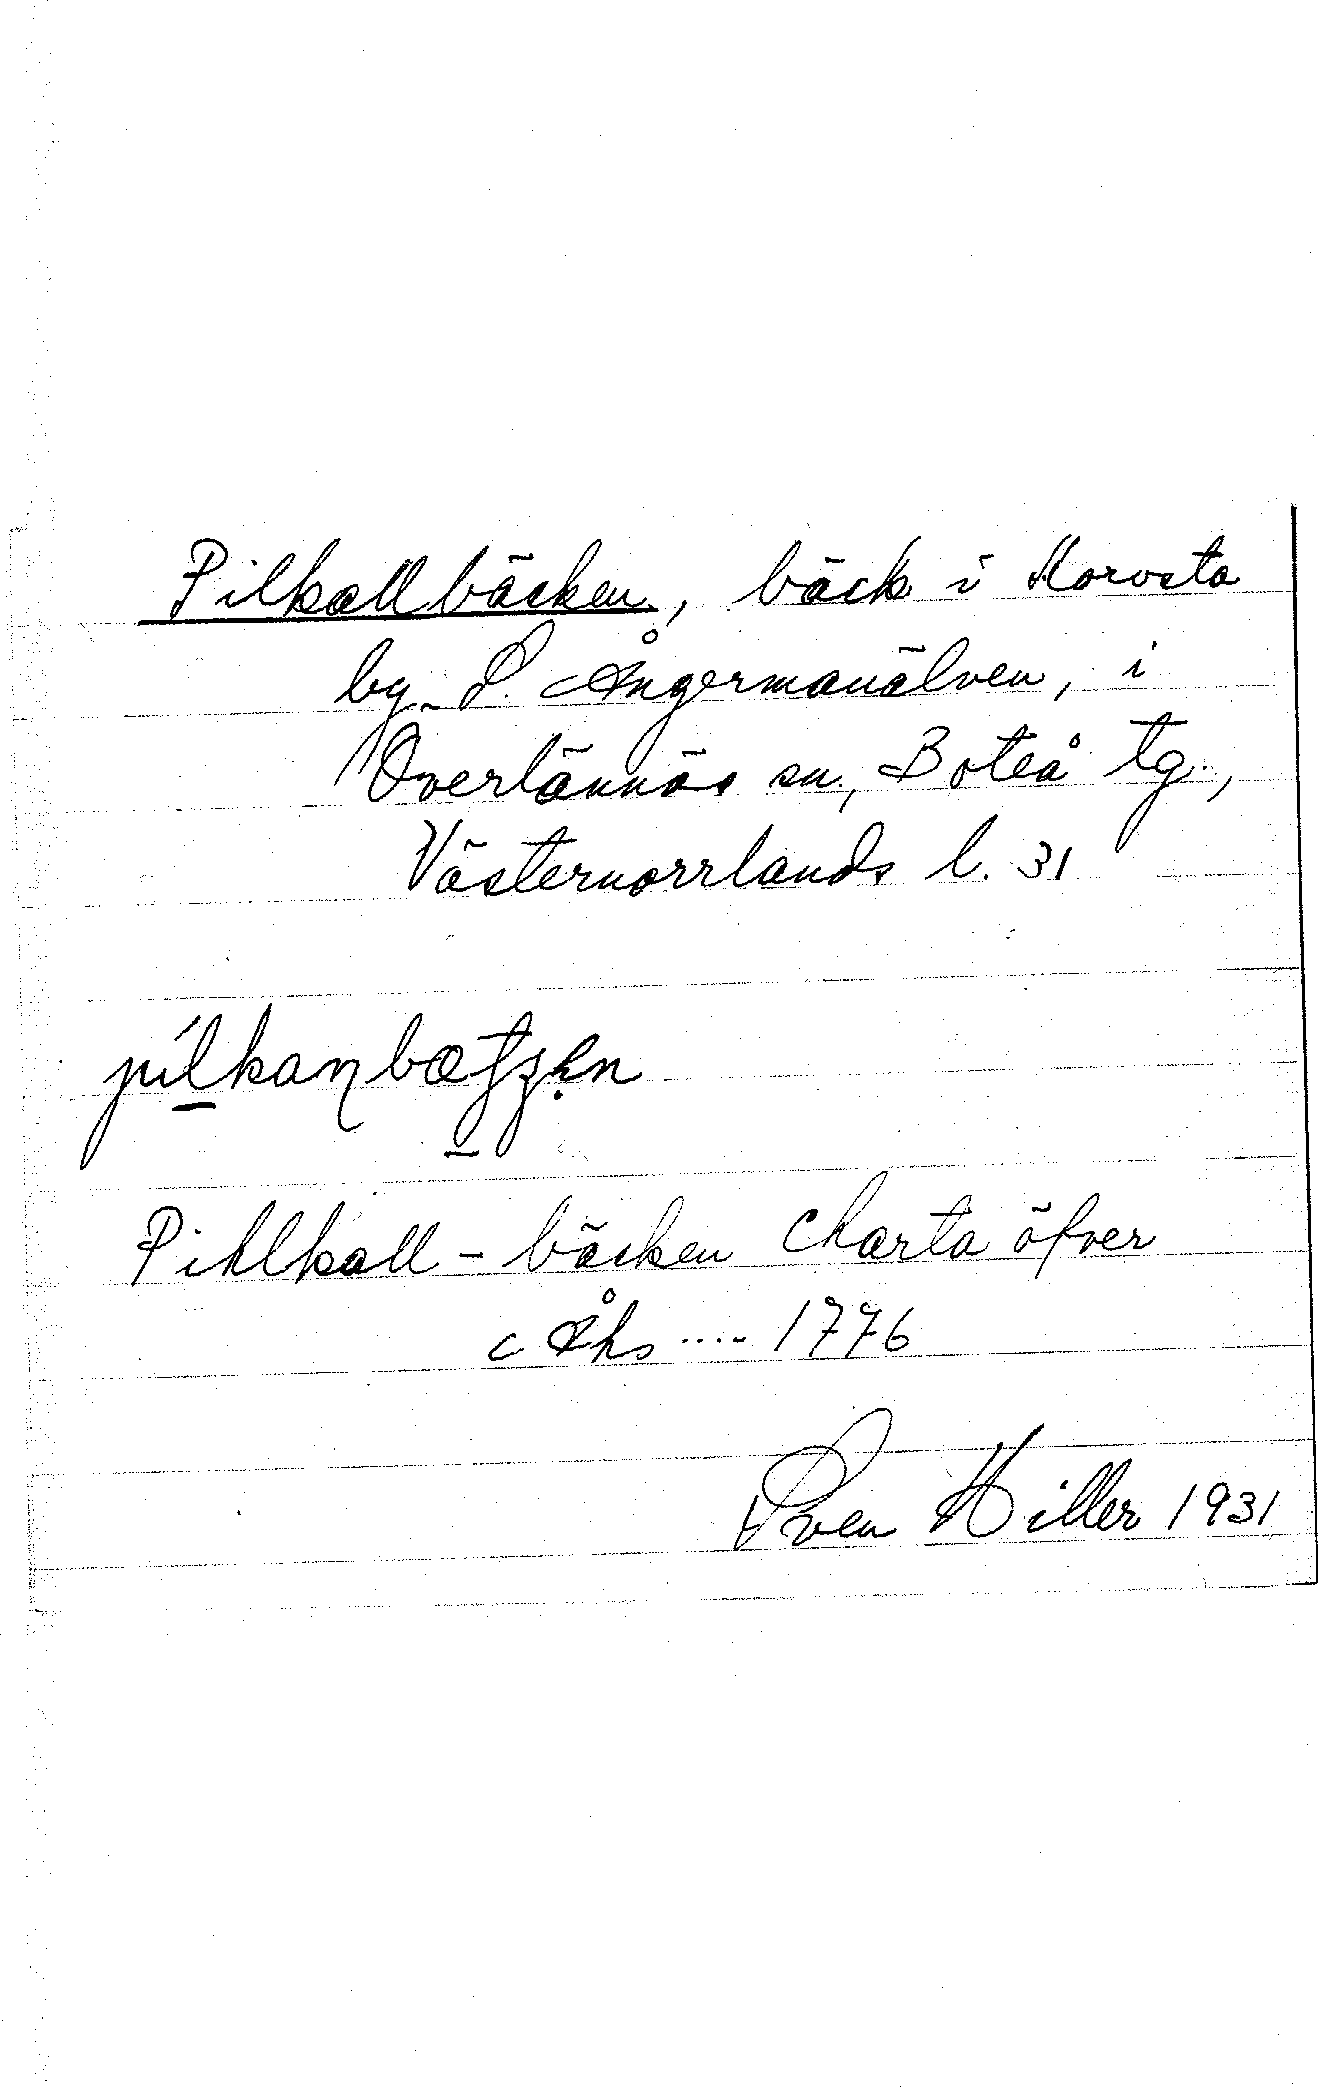 Pilkallbäcken, bäck i Korvsta
by S. Ångermanälven, i
Överlännäs sn, Boteå tg.,
Västernorrlands l. 31
Pihlkall - bäcken Charta öfver
Åhs .... 1776
Sven Hiller 1931